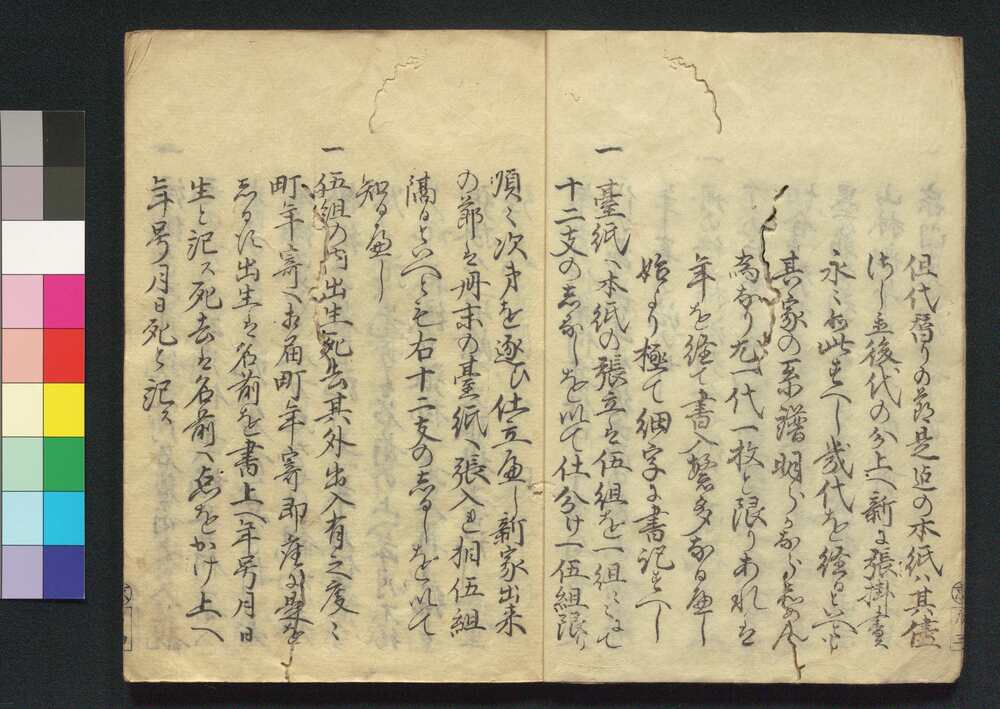 但代替りの節是迄の本紙ハ其儘
ニ致し置後代の分上へ新に張掛書
永々如此すへし幾代を経るといへとも
其家の系譜明らかならしめんか
為なり尤一代一枚と限りあれは
年を経て書入繁多なるへし
始より極て細字に書記すへし
一 臺紙へ本紙の張立は伍組を一組ことにして
十二支のしるしを以て仕分け一伍組限り
順々次第を逐ひ仕立へし新家出来
の節は冊末の臺紙へ張入れ相伍組
隔るといへとも右十二支のしるしを以て
知るへし
一 伍組の内出生死去其外出入有之度々
町年寄へ相届町年寄即座に是を
しるす出生は名前を書上へ年号月日
生と記ス死去は名前へ点をかけ上へ
年号月日死と記ス